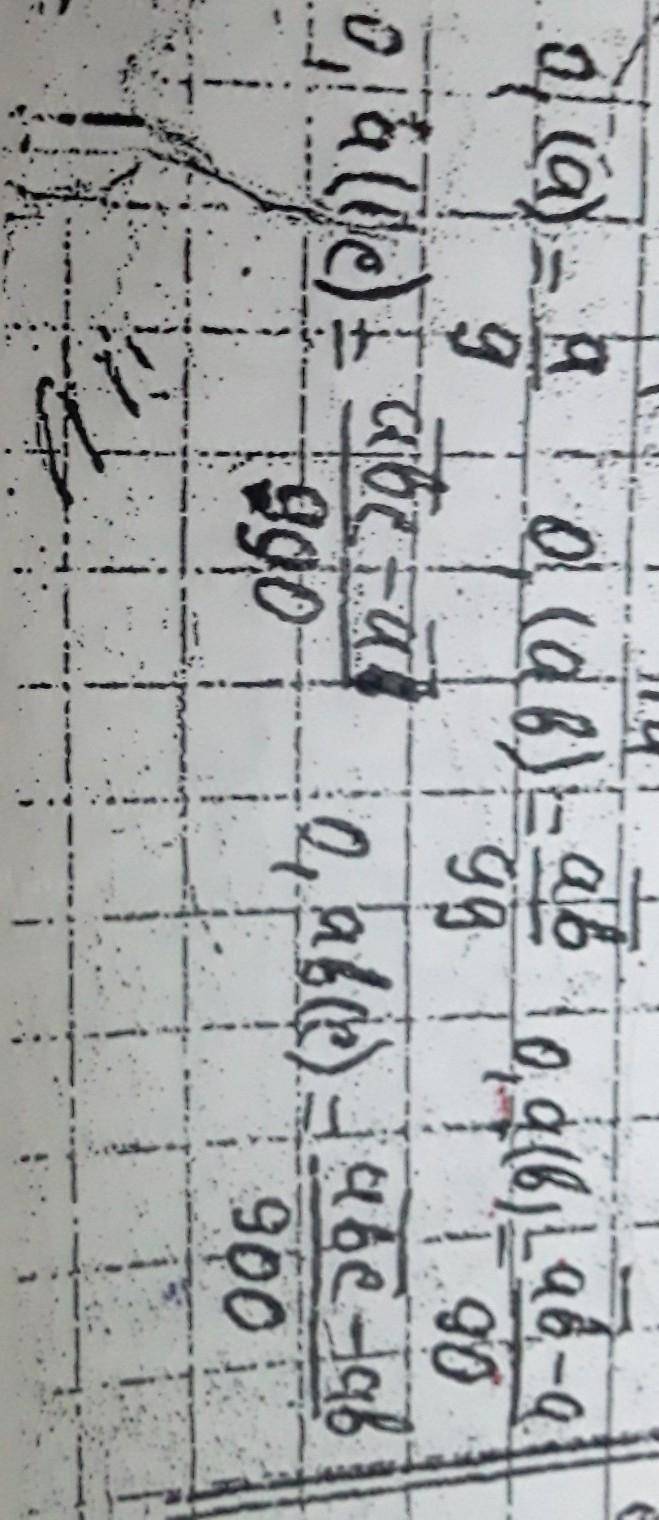 0,(a) = a/9 0,(ab) = ab̅/99 0,a(b) = ab̅-a/90
0,a(bc) = abc̅-a/990 0,ab(c) = abc̅-ab/900